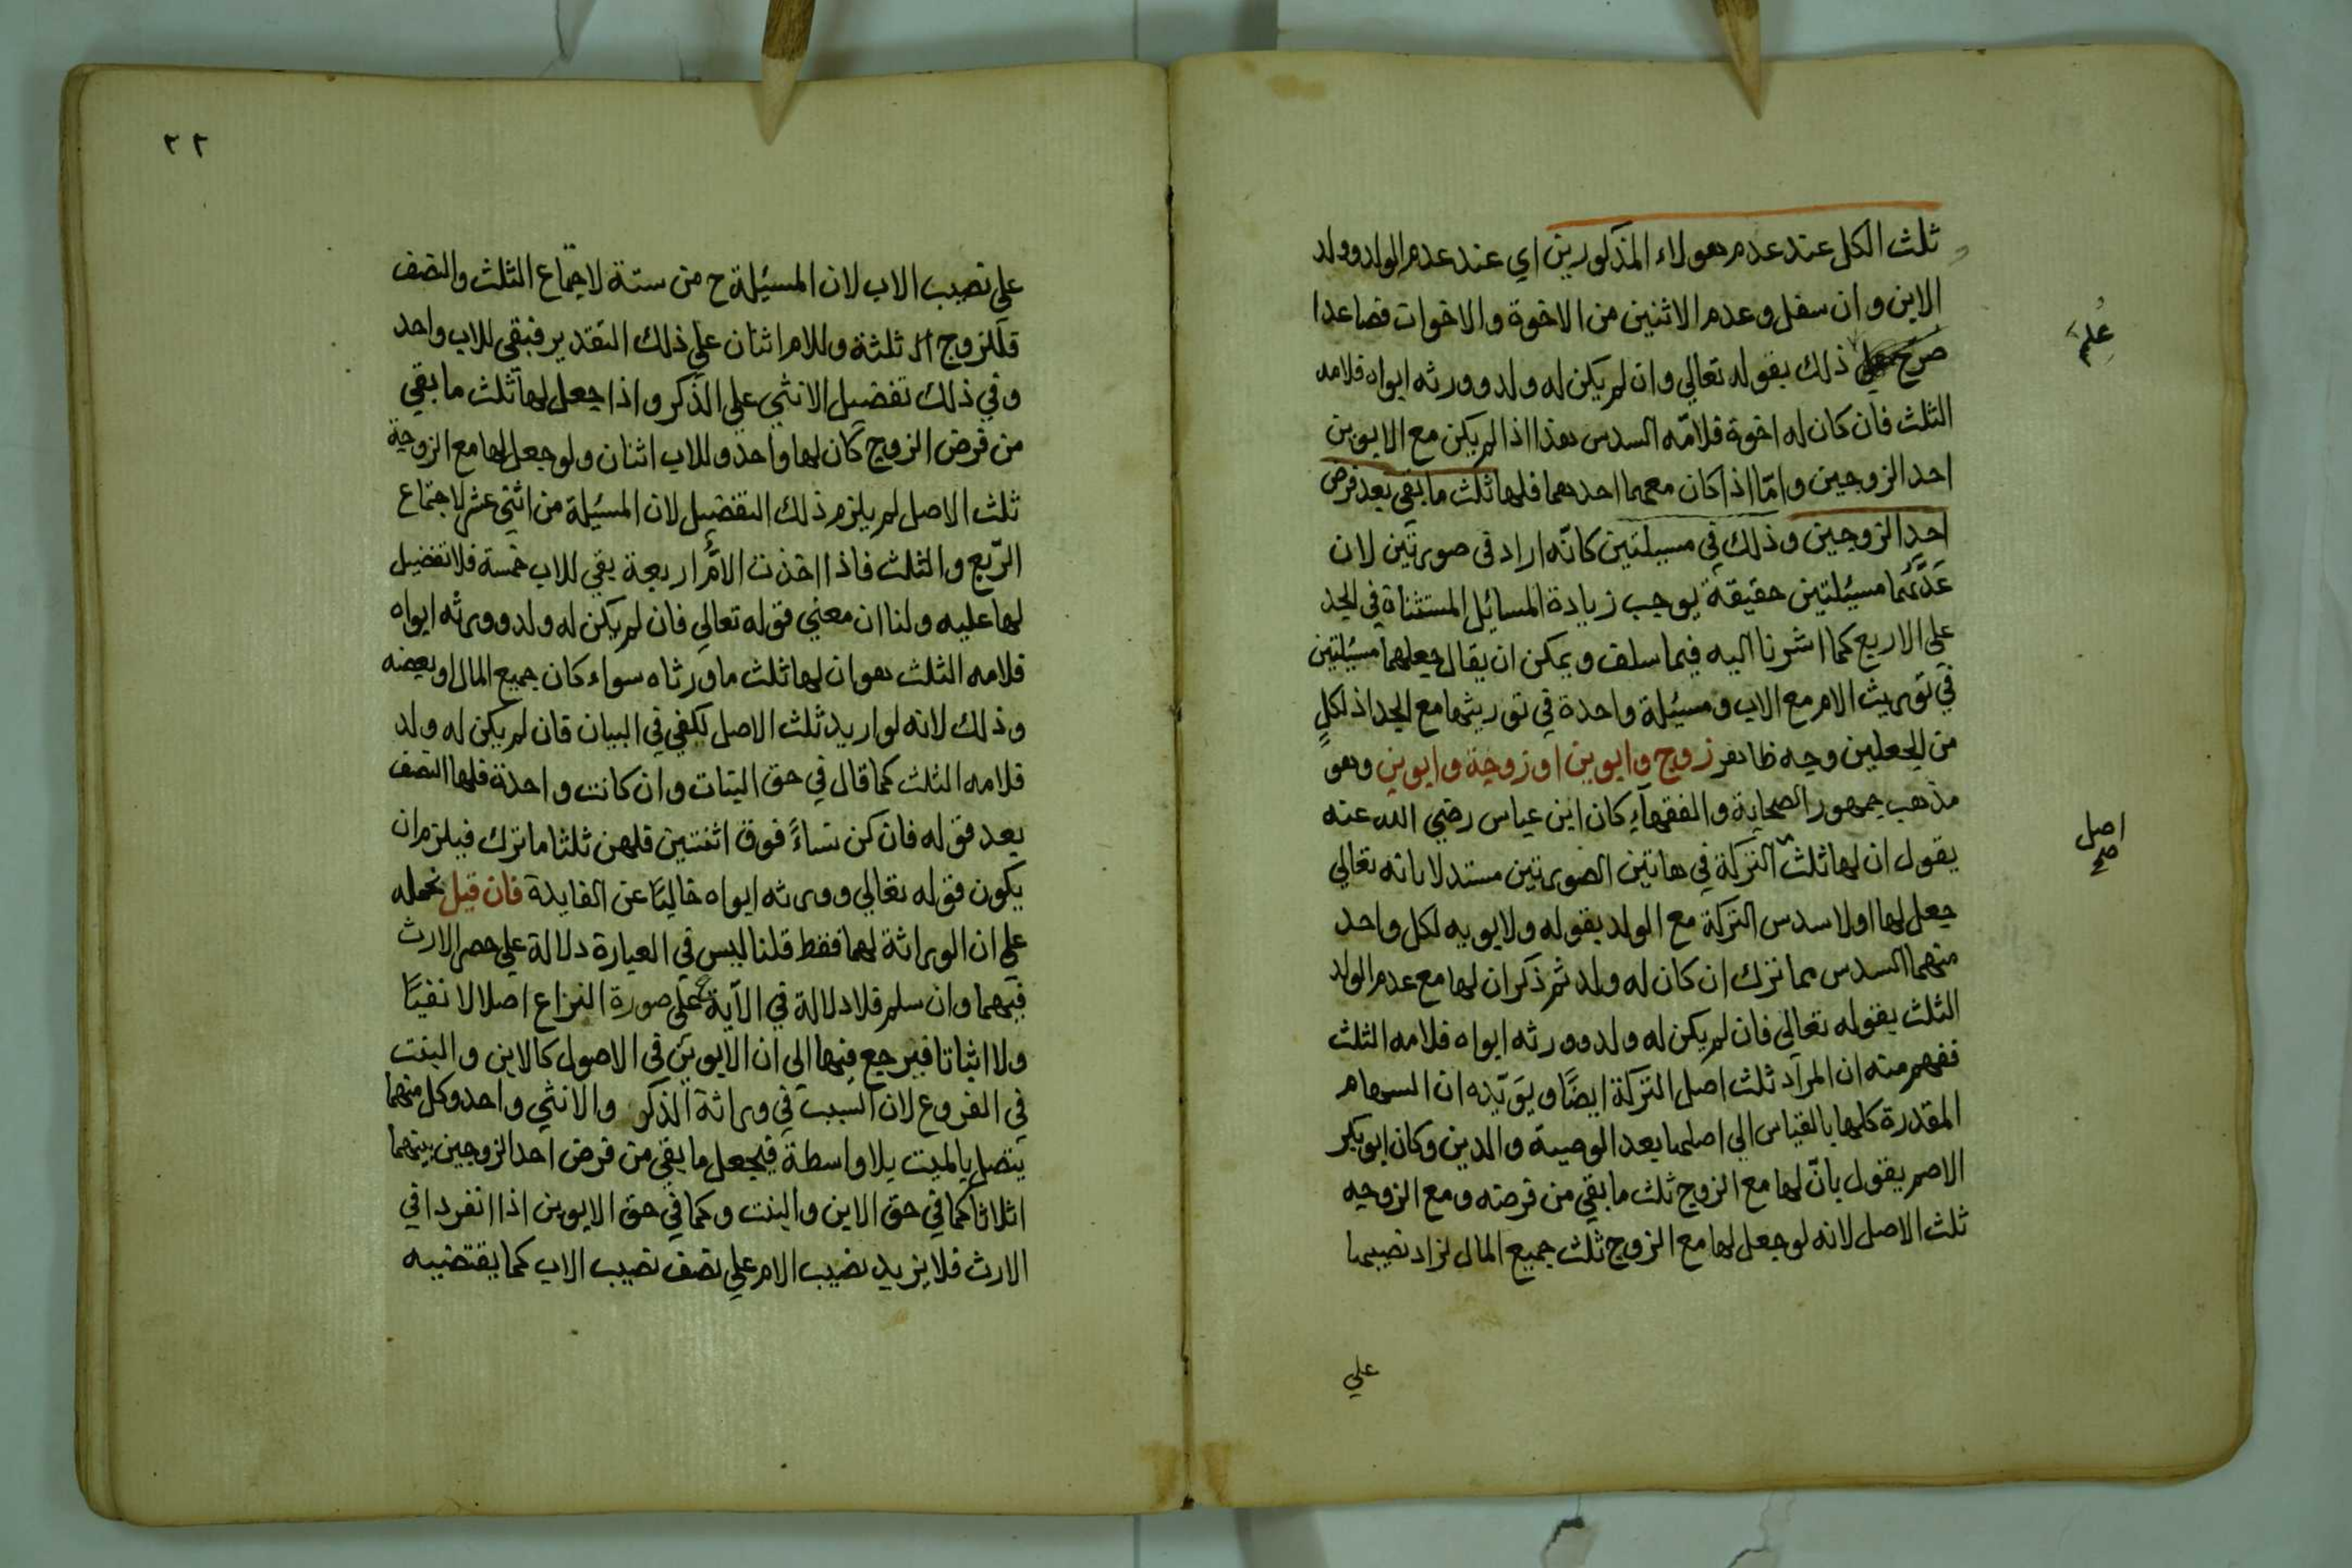 ثلث الكل عند عدم هولاء المذكورين اي عند عدم الولد وولد
الابن وان سفل وعدم الاثنين من الاخوة والاخوات فصاعدا
صرّح ذلك بقوله تعالي وان لم يكن له ولد وورثه ابواه فلامه
علم
الثلث فان كان له اخوة فلامّه السدس هذا اذا لم يكن مع الابوين
احد الزوجين وامّا اذا كان معهما احدهما فلها ثلث ما بقي بعد فرض
احد الزوجين وذلك في مسيلتين كانّه اراد في صورتين لان
عَدَّهُما مسيُلتين حقيقة يوجب زيادة المسائل المستثناة في الجد
علي الاربع كما اشرنا اليه فيما سلف ويمكن ان يقال جعلهما مسيُلتين
في توريث الام مع الاب ومسيُلة واحدة في توريثها مع الجد اذ لكلٍ
من الجعلين وجه ظاهر زوج وابوين او زوجة وابوين وهو
مذهب جمهور الصحابة والفقهآء كان ابن عباس رضي الله عنه
يقول ان لها ثلث التركة في هاتين الصورتين مستدلا بانه تعالي
اصل صح
جعل لها اولا سدس التركة مع الولد بقوله ولابويه لكل واحد
منهما السدس مما ترك ان كان له ولد ثم ذكر ان لها مع عدم الولد
الثلث بقوله تعالى فان لم يكن له ولد وورثه ابواه فلامه الثلث
ففهم منه ان المراد ثلث اصل التركة ايضًا ويؤيّده ان السهام
المقدرة كلها بالقياس الي اصلها بعد الوصية والدين وكان ابو بكر
الاصم يقول بانّ لها مع الزوج ثلث ما بقي من فرضه ومع الزوجه
ثلث الاصل لانه لو جعل لها مع الزوج ثلث جميع المال لزاد نصيبها
علي
٢٢
علي نصيب الاب لان المسيُلة ح من ستة لاجتماع الثلث والنصف
فللزوج ثلثة وللام اثنان علي ذلك التقدير فبقي للاب واحد
وفي ذلك تفضيل الانثي علي الذكر واذا جعل لها ثلث ما بقي
من فرض الزوج كان لها واحد وللاب اثنان ولو جعل لها مع الزوجة
ثلث الاصل لم يلزم ذلك التفضيل لان المسيُلة من اثني عشر لاجتماع
الرّبع والثلث فاذا اخذت الامُّ اربعة بقي للاب خمسة فلا تفضيل
لها عليه ولنا ان معني قوله تعالي فان لم يكن له ولد وورثه ابواه
فلامه الثلث هو ان لها ثلث ما ورثاه سواء كان جميع المال او بعضه
وذلك لانه لو اريد ثلث الاصل لكفي في البيان فان لم يكن له ولد
فلامه الثلث كما قال في حق البنات وان كانت واحدة فلها النصف
بعد قوله فان كن نساءً فوق اثنتين فلهن ثلثا ما ترك فيلزم ان
يكون قوله تعالي وورثه ابواه خاليًا عن الفايدة فان قيل نحمله
علي ان الوراثة لهما فقط قلنا ليس في العبارة دلالة علي حصر الارث
فيهما وان سلم فلا دلالة في الآية ح علي صورة النزاع اصلا لا نفيًا
ولا اثباتا فيرجع فيها الى ان الابوين في الاصول كالابن والبنت
في الفروع لان السبب في وراثة الذكر والانثي واحد وكل منهما
يتصل بالميت بلا واسطة فيجعل ما بقي من فرض احد الزوجين بينهما
اثلاثا كما في حق الابن والبنت وكما في حق الابوين اذا انفردا في
الارث فلا يزيد نصيب الام علي نصف نصيب الاب كما يقتضيه